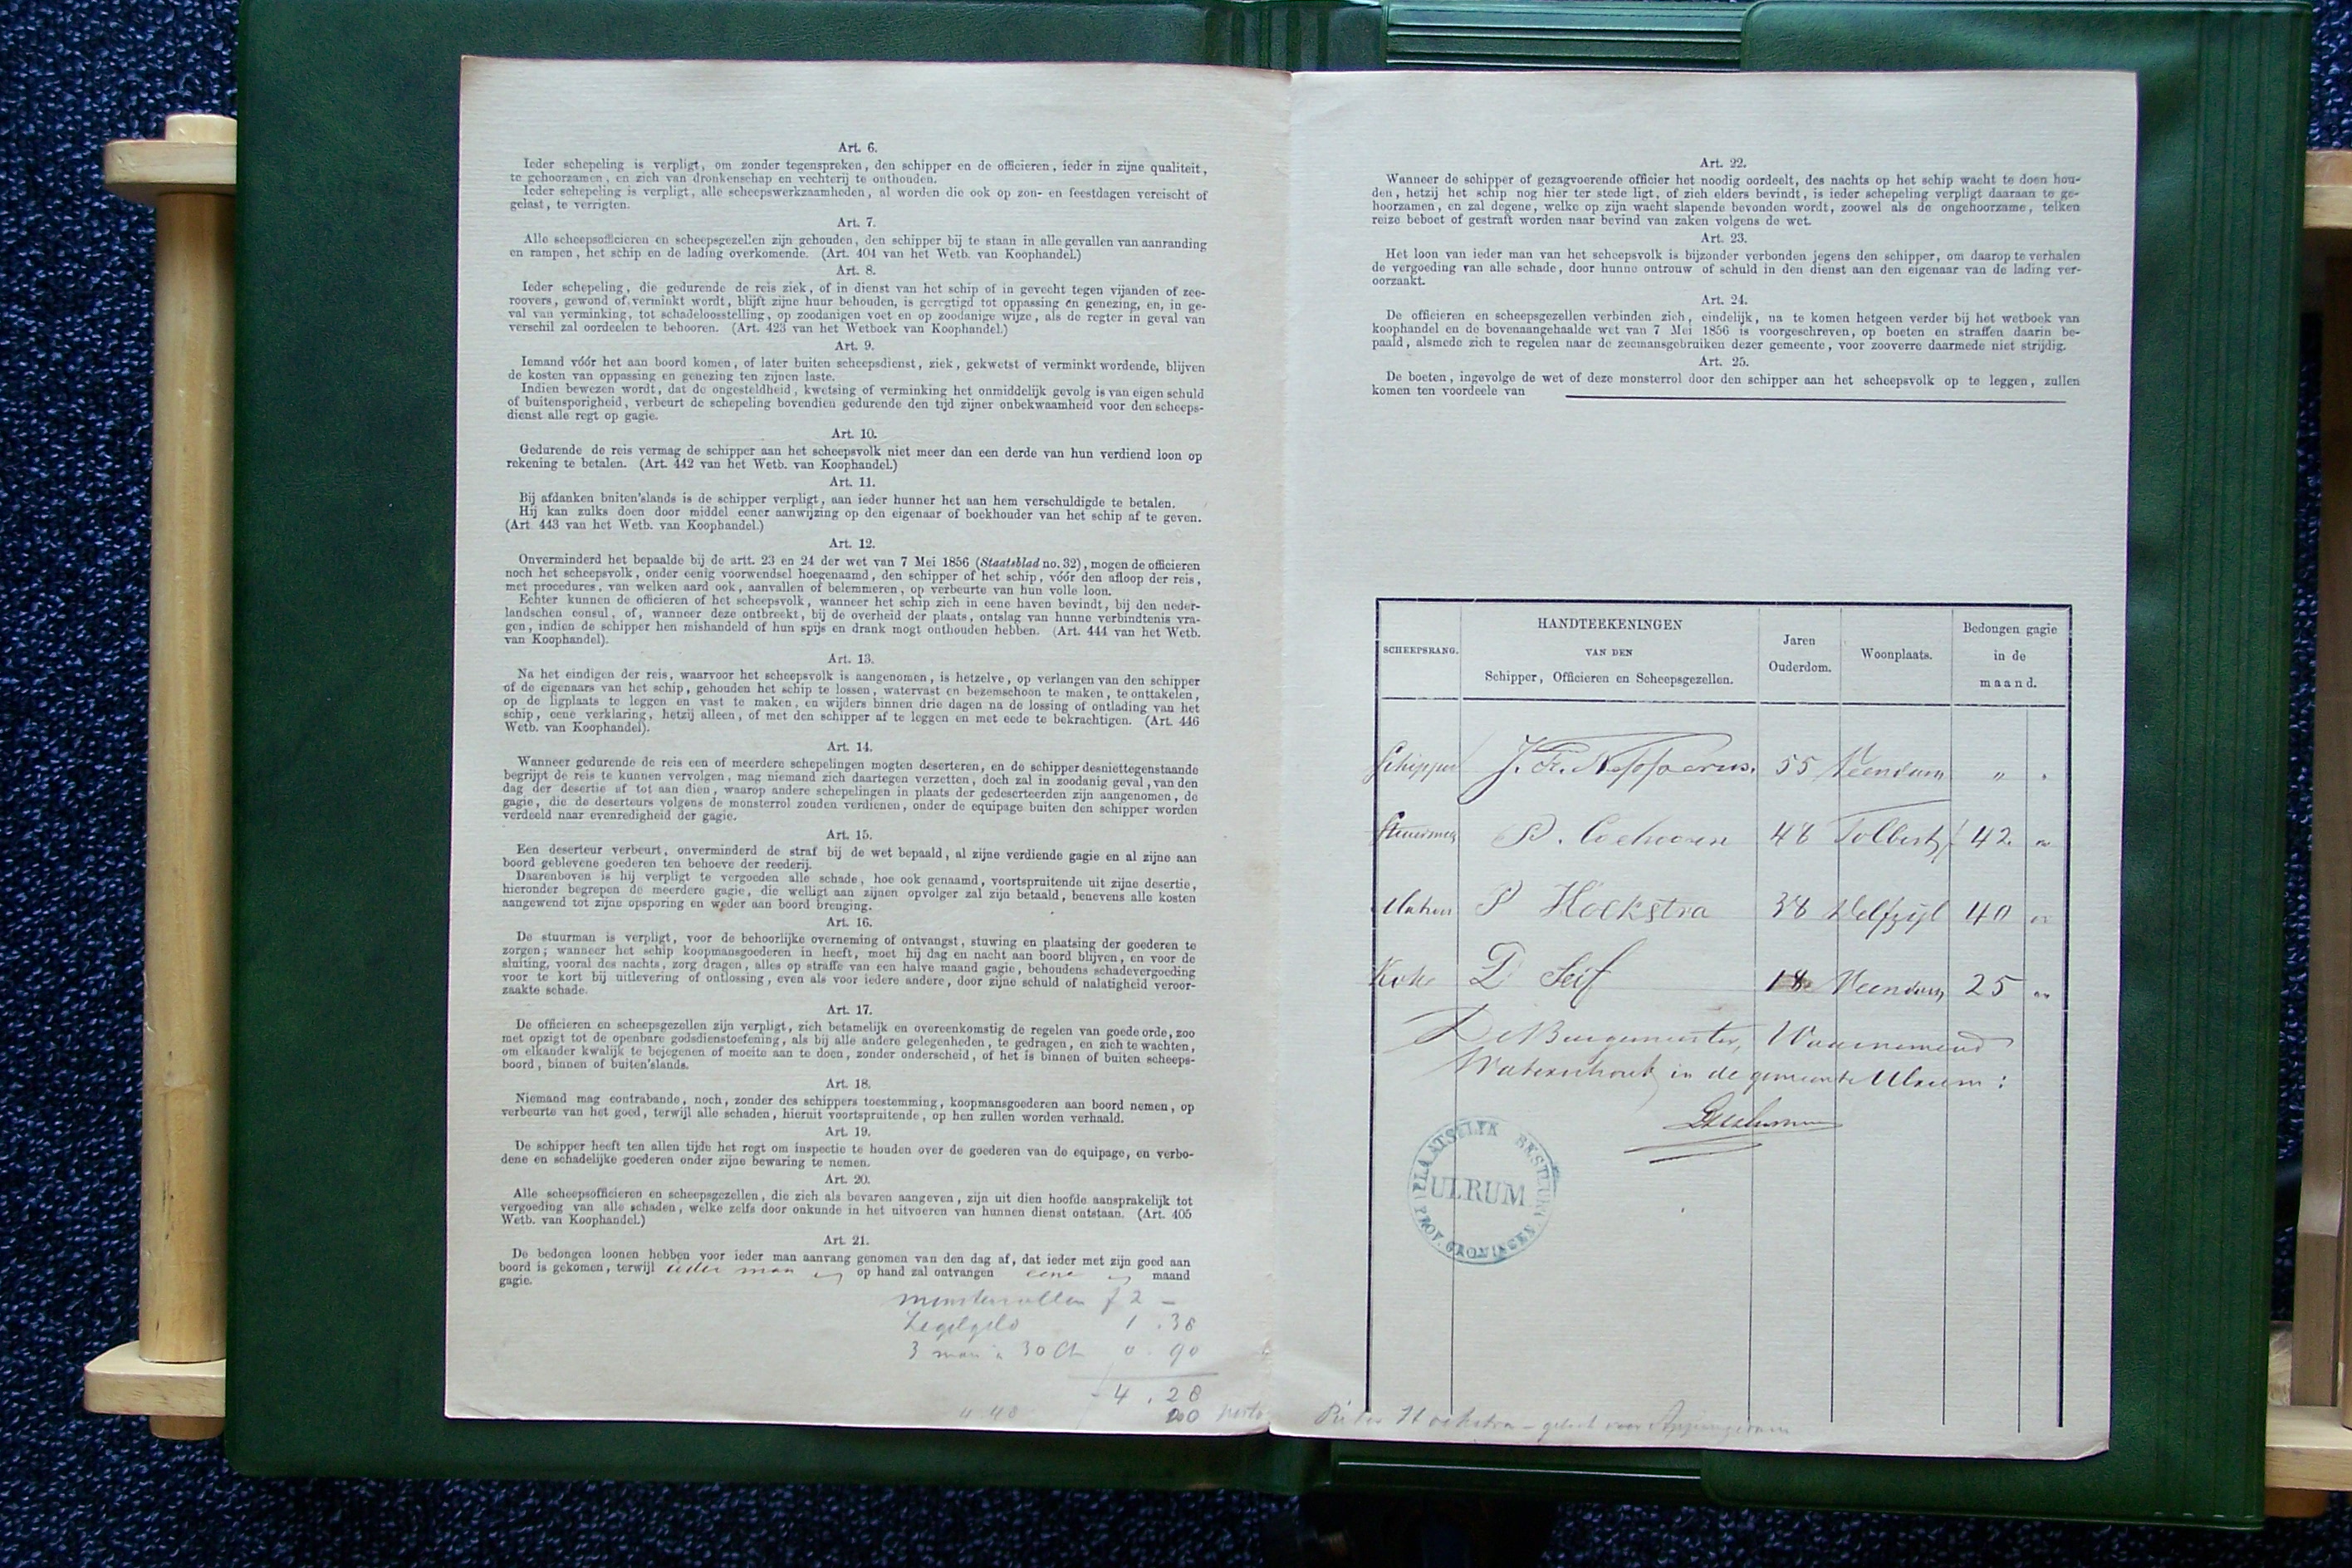 Art. 6.
Ieder schepeling is verpligt, om zonder tegenspreken, den schipper en de officieren, ieder in zijne qualiteit,
te gehoorzamen, en zich van dronkenschap en vechterij te onthouden.
Ieder schepeling is verpligt, alle scheepswerkzaamheden, al worden die ook op zon- en feestdagen vereischt of
gelast, te verrigten.
Art. 7.
Alle scheepsofficieren en scheepsgezellen zijn gehouden, den schipper bij te staan in alle gevallen van aanranding
en rampen, het schip en de lading overkomende. (Art. 404 van het Wetb. van Koophandel.)
Art. 8.
Ieder schepeling, die gedurende de reis ziek, of in dienst van het schip of in gevecht tegen vijanden of zee-
roovers, gewond of verminkt wordt, blijft zijne huur behouden, is geregtigd tot oppassing en genezing, en, in ge-
val van verminking, tot schadeloosstelling, op zoodanigen voet en op zoodanige wijze, als de regter in geval van
verschil zal oordeelen te behooren. (Art. 423 van het Wetboek van Koophandel.)
Art. 9.
Iemand vóór het aan boord komen, of later buiten scheepsdienst, ziek, gekwetst of verminkt wordende, blijven
de kosten van oppassing en genezing ten zijnen laste.
Indien bewezen wordt, dat de ongesteldheid, kwetsing of verminking het onmiddelijk gevolg is van eigen schuld
of buitensporigheid, verbeurt de schepeling bovendien gedurende den tijd zijner onbekwaamheid voor den scheeps-
dienst alle regt op gagie.
Art. 10.
Gedurende de reis vermag de schipper aan het scheepsvolk niet meer dan een derde van hun verdiend loon op
rekening te betalen. (Art. 442 van het Wetb. van Koophandel.)
Art. 11.
Bij afdanken bniten'slands is de schipper verpligt, aan ieder hunner het aan hem verschuldigde te betalen.
Hij kan zulks doen door middel eener aanwijzing op den eigenaar of boekhouder van het schip af te geven.
(Art. 443 van het Wetb. van Koophandel.)
Art. 12.
Onverminderd het bepaalde bij de artt. 23 en 24 der wet van 7 Mei 1856 (Staatsblad no. 32), mogen de officieren
noch het scheepsvolk, onder eenig voorwendsel hoegenaamd, den schipper of het schip, vóór den afloop der reis,
met procedures, van welken aard ook, aanvallen of belemmeren, op verbeurte van hun volle loon.
Echter kunnen de officieren of het scheepsvolk, wanneer het schip zich in eene haven bevindt, bij den neder-
landschen consul, of, wanneer deze ontbreekt, bij de overheid der plaats, ontslag van hunne verbindtenis vra-
gen, indien de schipper hen mishandeld of hun spijs en drank mogt onthouden hebben. (Art. 444 van het Wetb.
van Koophandel).
Art. 13.
Na het eindigen der reis, waarvoor het scheepsvolk is aangenomen, is hetzelve, op verlangen van den schipper
of de eigenaars van het schip, gehouden het schip te lossen, watervast en bezemschoon te maken, te onttakelen,
op de ligplaats te leggen en vast te maken, en wijders binnen drie dagen na de lossing of ontlading van het
schip, eene verklaring, hetzij alleen, of met den schipper af te leggen en met eede te bekrachtigen. (Art. 446
Wetb. van Koophandel).
Art. 14.
Wanneer gedurende de reis een of meerdere schepelingen mogten deserteren, en de schipper desniettegenstaande
begrijpt de reis te kunnen vervolgen, mag niemand zich daartegen verzetten, doch zal in zoodanig geval, van den
dag der desertie af tot aan dien, waarop andere schepelingen in plaats der gedeserteerden zijn aangenomen, de
gagie, die de deserteurs volgens de monsterrol zouden verdienen, onder de equipage buiten den schipper worden
verdeeld naar evenredigheid der gagie.
Art. 15.
Een deserteur verbeurt, onverminderd de straf bij de wet bepaald, al zijne verdiende gagie en al zijne aan
boord geblevene goederen ten behoeve der reederij.
Daarenboven is hij verpligt te vergoeden alle schade, hoe ook genaamd, voortspruitende uit zijne desertie,
hieronder begrepen de meerdere gagie, die welligt aan zijnen opvolger zal zijn betaald, benevens alle kosten
aangewend tot zijne opsporing en weder aan boord brenging.
Art. 16.
De stuurman is verpligt, voor de behoorlijke overneming of ontvangst, stuwing en plaatsing der goederen te
zorgen; wanneer het schip koopmansgoederen in heeft, moet hij dag en nacht aan boord blijven, en voor de
sluiting, vooral des nachts, zorg dragen, alles op straffe van een halve maand gagie, behoudens schadevergoeding
voor te kort bij uitlevering of ontlossing, even als voor iedere andere, door zijne schuld of nalatigheid veroor-
zaakte schade.
Art. 17.
De officieren en scheepsgezellen zijn verpligt, zich betamelijk en overeenkomstig de regelen van goede orde, zoo
met opzigt tot de openbare godsdienstoefening, als bij alle andere gelegenheden, te gedragen, en zich te wachten,
om elkander kwalijk te bejegenen of moeite aan te doen, zonder onderscheid, of het is binnen of buiten scheeps-
boord, binnen of buiten'slands.
Art. 18.
Niemand mag contrabande, noch, zonder des schippers toestemming, koopmansgoederen aan boord nemen, op
verbeurte van het goed, terwijl alle schaden, hieruit voortspruitende, op hen zullen worden verhaald.
Art. 19.
De schipper heeft ten allen tijde het regt om inspectie te houden over de goederen van de equipage, en verbo-
dene en schadelijke goederen onder zijne bewaring te nemen.
Art. 20.
Alle scheepsofficieren en scheepsgezellen, die zich als bevaren aangeven, zijn uit dien hoofde aansprakelijk tot
vergoeding van alle schaden, welke zelfs door onkunde in het uitvoeren van hunnen dienst ontstaan. (Art. 405
Wetb. van Koophandel.)
Art. 21.
De bedongen loonen hebben voor ieder man aanvang genomen van den dag af, dat ieder met zijn goed aan
boord is gekomen, terwijl ieder man op hand zal ontvangen eene maand
gagie.
monsterrollen f 2 –
Zegelgeld 1.38
3 man a 30 Ct 0.90
4.28
porto
4.48
Art. 22.
Wanneer de schipper of gezagvoerende officier het noodig oordeelt, des nachts op het schip wacht te doen hou-
den, hetzij het schip nog hier ter stede ligt, of zich elders bevindt, is ieder schepeling verpligt daaraan te ge-
hoorzamen, en zal degene, welke op zijn wacht slapende bevonden wordt, zoowel als de ongehoorzame, telken
reize beboet of gestraft worden naar bevind van zaken volgens de wet.
Art. 23.
Het loon van ieder man van het scheepsvolk is bijzonder verbonden jegens den schipper, om daarop te verhalen
de vergoeding van alle schade, door hunne ontrouw of schuld in den dienst aan den eigenaar van de lading ver-
oorzaakt.
Art. 24.
De officieren en scheepsgezellen verbinden zich, eindelijk, na te komen hetgeen verder bij het wetboek van
koophandel en de bovenaangehaalde wet van 7 Mei 1856 is voorgeschreven, op boeten en straffen daarin be-
paald, alsmede zich te regelen naar de zeemansgebruiken dezer gemeente, voor zooverre daarmede niet strijdig.
Art. 25.
De boeten, ingevolge de wet of deze monsterrol door den schipper aan het scheepsvolk op te leggen, zullen
komen ten voordeele van
SCHEEPSRANG.
HANDTEEKENINGEN
VAN DEN
Schipper, Officieren en Scheepsgezellen.
Jaren
Ouderdom.
Woonplaats.
Bedongen gagie
in de
maand.
Schipper 55 Veendam " "
Stuurman 48 Tolbert f 42 "
Matroos P Hoekstra 38 Delfzijl 40 "
Kok D Seif 18 Veendam 25 "
De Burgemeester, Waarnemend
Waterschout in de gemeente Ulrum:
PLAATSELYK BESTUUR
ULRUM
PROV. GRONINGEN
Pieter Hoekstra – geloot voor Appingedam